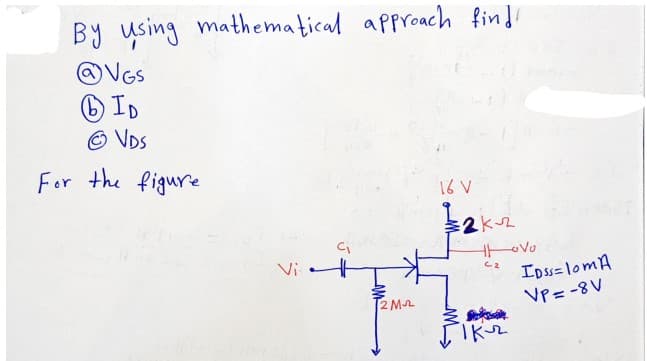 By using mathematical approach find
ⓐ VGS
ⓑ ID
ⓒ VDS
For the figure
16 V
2 KΩ
Ci
C2
Vo
Vi
IDSS=10mA
VP=-8V
2 MΩ
1 KΩ